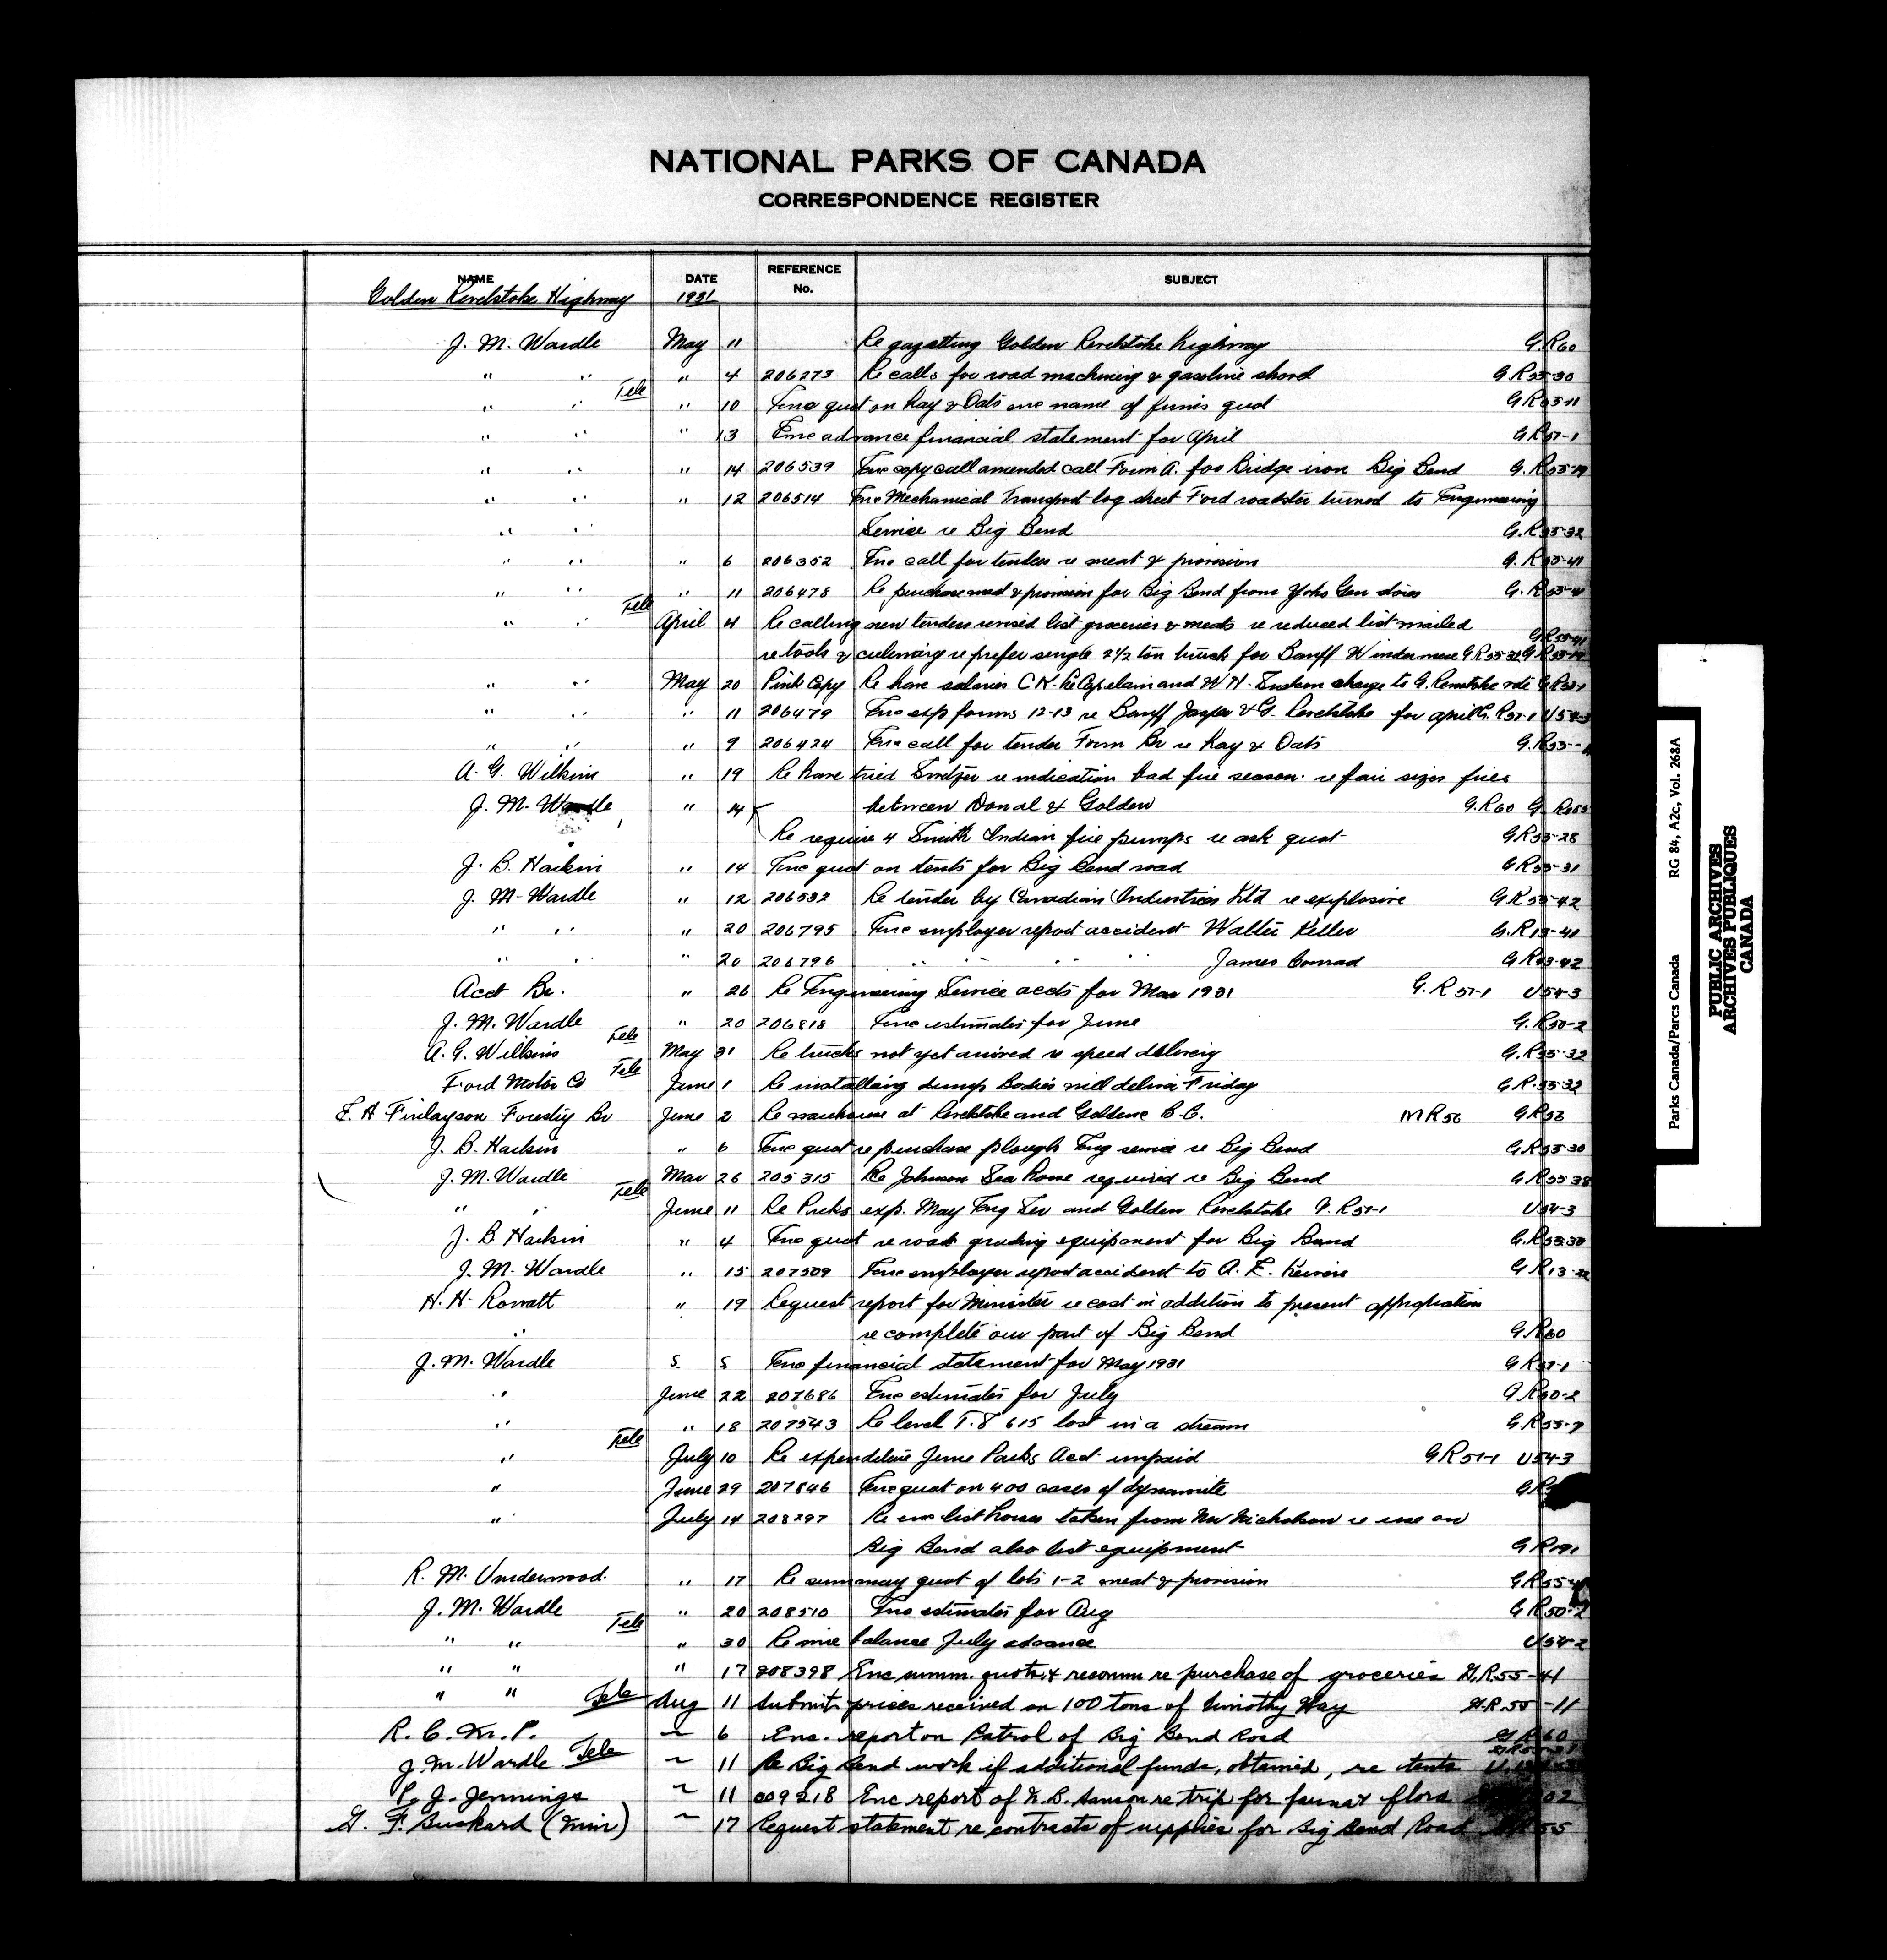 NATIONAL PARKS OF CANADA
CORRESPONDENCE REGISTER
NAME DATE REFERENCE No. SUBJECT
Golden Revelstoke Highway 1931
J. M. Wardle May 11 Re gazetting Golden Revelstoke Highway G.R60
" " " 4 206273 Re calls for road machinery & gasoline shovel G R55-30
" " Tele " 10 Enc quot on Hay & Oats enc name of firms quot G R55-11
" " " 13 Enc advance financial statement for April G R51-1
" " " 14 206539 Enc copy call amended call Form A. for Bridge iron Big Bend G.R55-19
" " " 12 206514 Enc Mechanical Transport log sheet Ford roadster turned to Engineering
" " Service re Big Bend G.R55-32
" " " 6 206352 Enc call for tenders re meat & provision G.R55-41
" " " 11 206478 Re purchase meat & provision for Big Bend from Yoho Gen stores G.R55-41
" " Tele April 4 Re calling new tenders revised list groceries & meats re reduced list mailed G R55-41
re tools & culinary re prefer single 2½ ton truck for Banff Windermere G.R55-32 G R55-19
" " May 20 Pink Copy Re have salaries C H. and W H. charge to G. Revelstoke vote G R51-1
" " " 11 206479 Enc exp forms 12-13 re Banff Jasper & G. Revelstoke for april G. R51-1 U54-3
" " " 9 206424 Enc call for tender Form Br re Hay & Oats G.R55-11
A. G. Wilkins " 19 Re have tried re indication bad fire season. re fair sizes fires
J. M. Wardle " 14 between Donal & Golden G.R60 G R55
Re require 4 Smith Indian fire pumps re ask quot G R55-28
J. B. Harkin " 14 Enc quot on tents for Big Bend road G R55-31
J. M. Wardle " 12 206532 Re tender by Canadian Industries Ltd re explosive G R55-42
" " " 20 206795 Enc employer report accident Walter Keller G.R13-41
" " " 20 206796 " " " " James Conrad G R13-42
Acct Br. " 26 Re Engineering Service accts for Mar 1931 G.R 51-1 U54-3
J. M. Wardle " 20 206818 Enc estimates for June G.R50-2
A. G. Wilkins Tele May 31 Re trucks not yet arrived re speed delivery G.R55-32
Ford Motor Co Tele June 1 Re installing dump bodies will deliver Friday G R.55-32
E. H Finlayson Forestry Br June 2 Re warehouse at Revelstoke and Goldenc B.C. M R56 G R56
J. B. Harkin " 6 Enc quot re purchase plough Eng service re Big Bend G R55-30
J. M. Wardle Mar 26 205315 Re Johnson Sea Horse required re Big Bend G R55-38
" " Tele June 11 Re Parks exp. May Eng Ser and Golden Revelstoke G.R51-1 U54-3
J. B. Harkin " 4 Enc quot re road grading equipment for Big Bend G.R55-30
J. M. Wardle " 15 207509 Enc employer report accident to A. E. G R13-22
H. H. Rowatt " 19 Request report for Minister re cost in addition to present appropriation
" re complete our part of Big Bend G.R60
J. M. Wardle 5 Enc financial statement for May 1931 G R51-1
" June 22 207686 Enc estimates for July G R50-2
" " 18 207543 Re level T.8 615 lost in a stream G R55-7
" Tele July 10 Re expenditure June Parks Acct unpaid G R51-1 U54-3
" June 29 207846 Enc quot on 400 cases of dynamite G R
" July 14 208297 Re enc list horses taken from Mr Nicholson re use on
Big Bend also list equipment G R191
R. M. Underwood. " 17 Re summary quot of lots 1-2 meat & provision G R55-4
J. M. Wardle " 20 208510 Enc estimates for Aug G R50-2
" " Tele " 30 Re wire balance July advance U54-2
" " " 17 208398 Enc summ. quots. & recomm re purchase of groceries G.R.55-41
" " Tele Aug 11 Submits prices received on 100 tons of Timothy Hay G.R.55-11
R. C. M. P. 6 Enc. report on Patrol of Big Bend Road G R60
J. M. Wardle Tele 11 Re Big Bend work if additional funds, obtained, re tents
P. J. Jennings 11 009218 Enc report of N. B. Sanson re trip for fauna & flora 02
G. F. Buskard (Min) 17 Request statement re contracts of supplies for Big Bend Road 55
RG 84, A2c, Vol. 268A
Parks Canada/Parcs Canada
PUBLIC ARCHIVES
ARCHIVES PUBLIQUES
CANADA